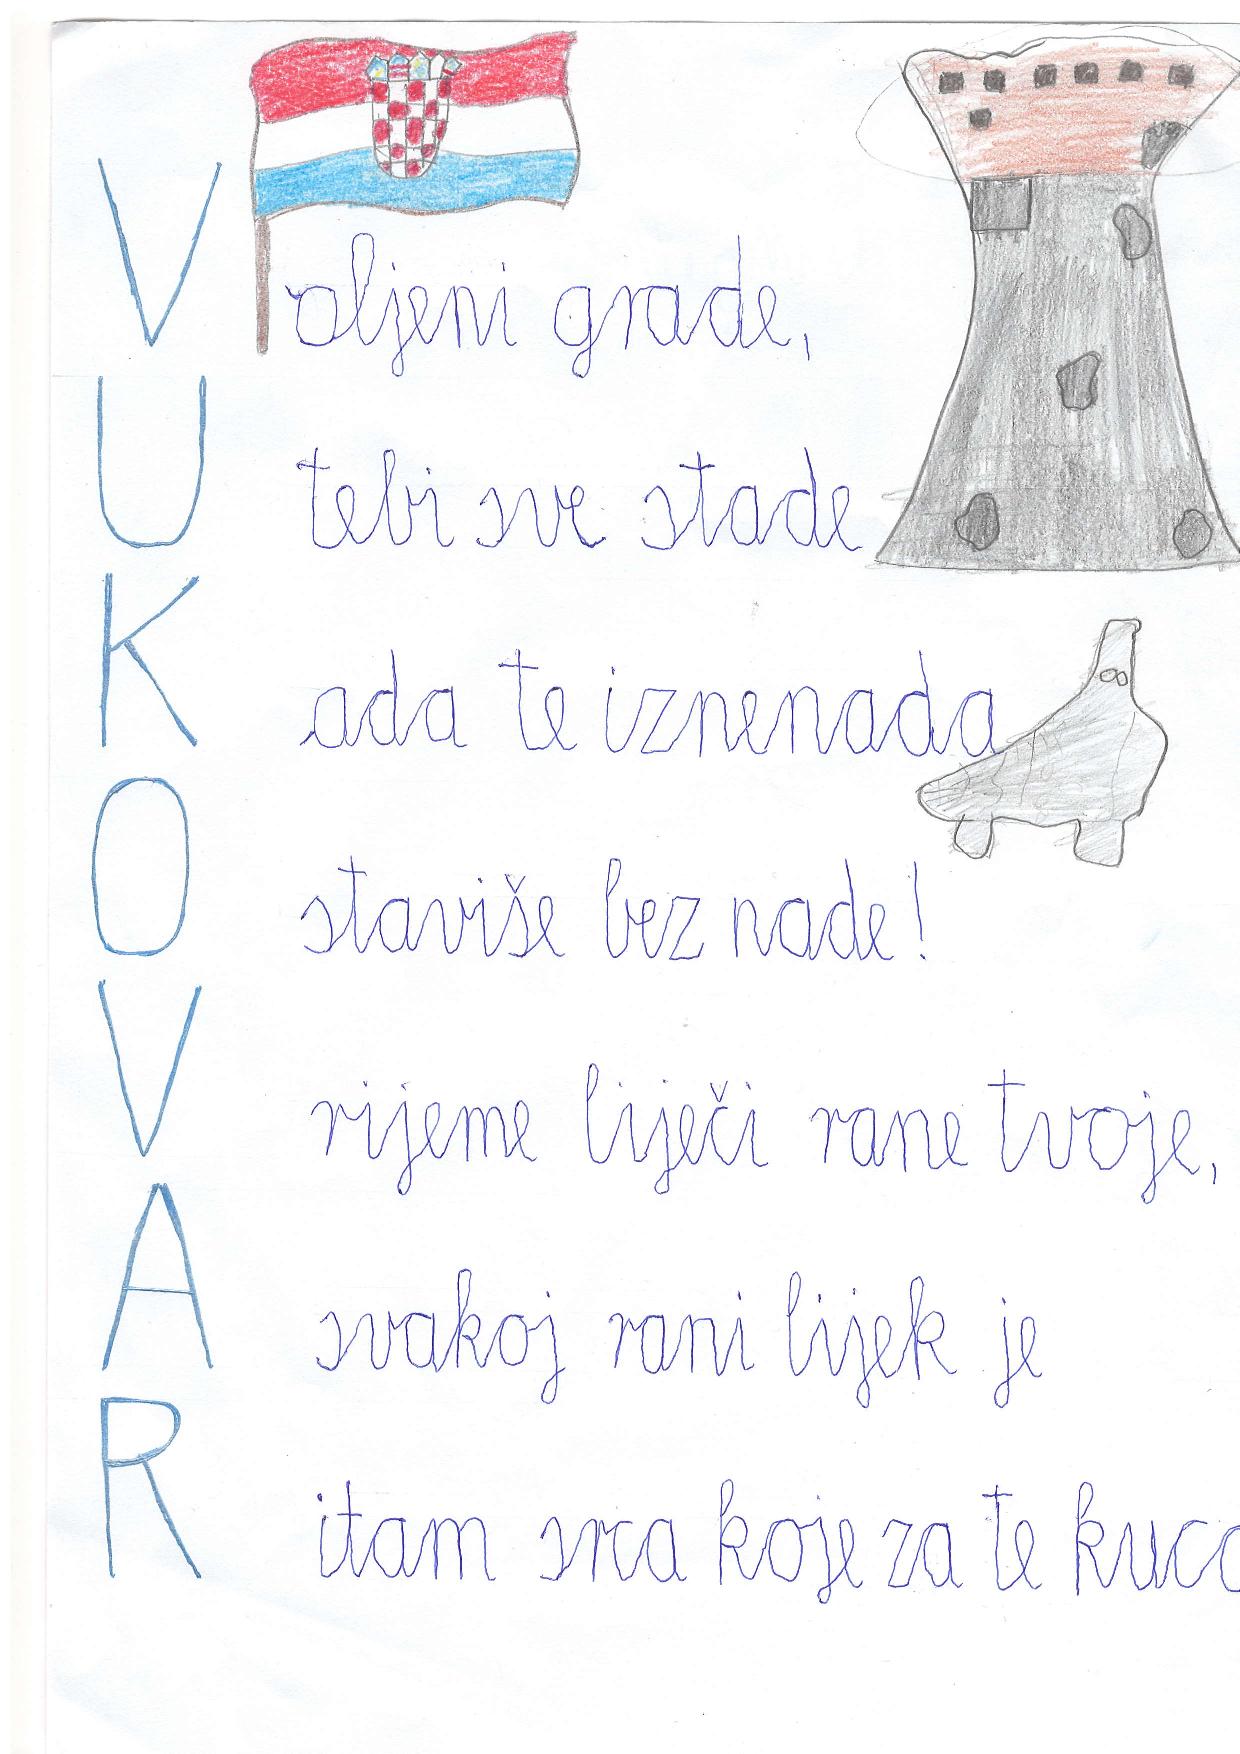 Voljeni grade,
U tebi sve stade
Kada te iznenada
Ostaviše bez nade!
Vrijeme liječi rane tvoje,
A svakoj rani lijek je
Ritam srca koje za te